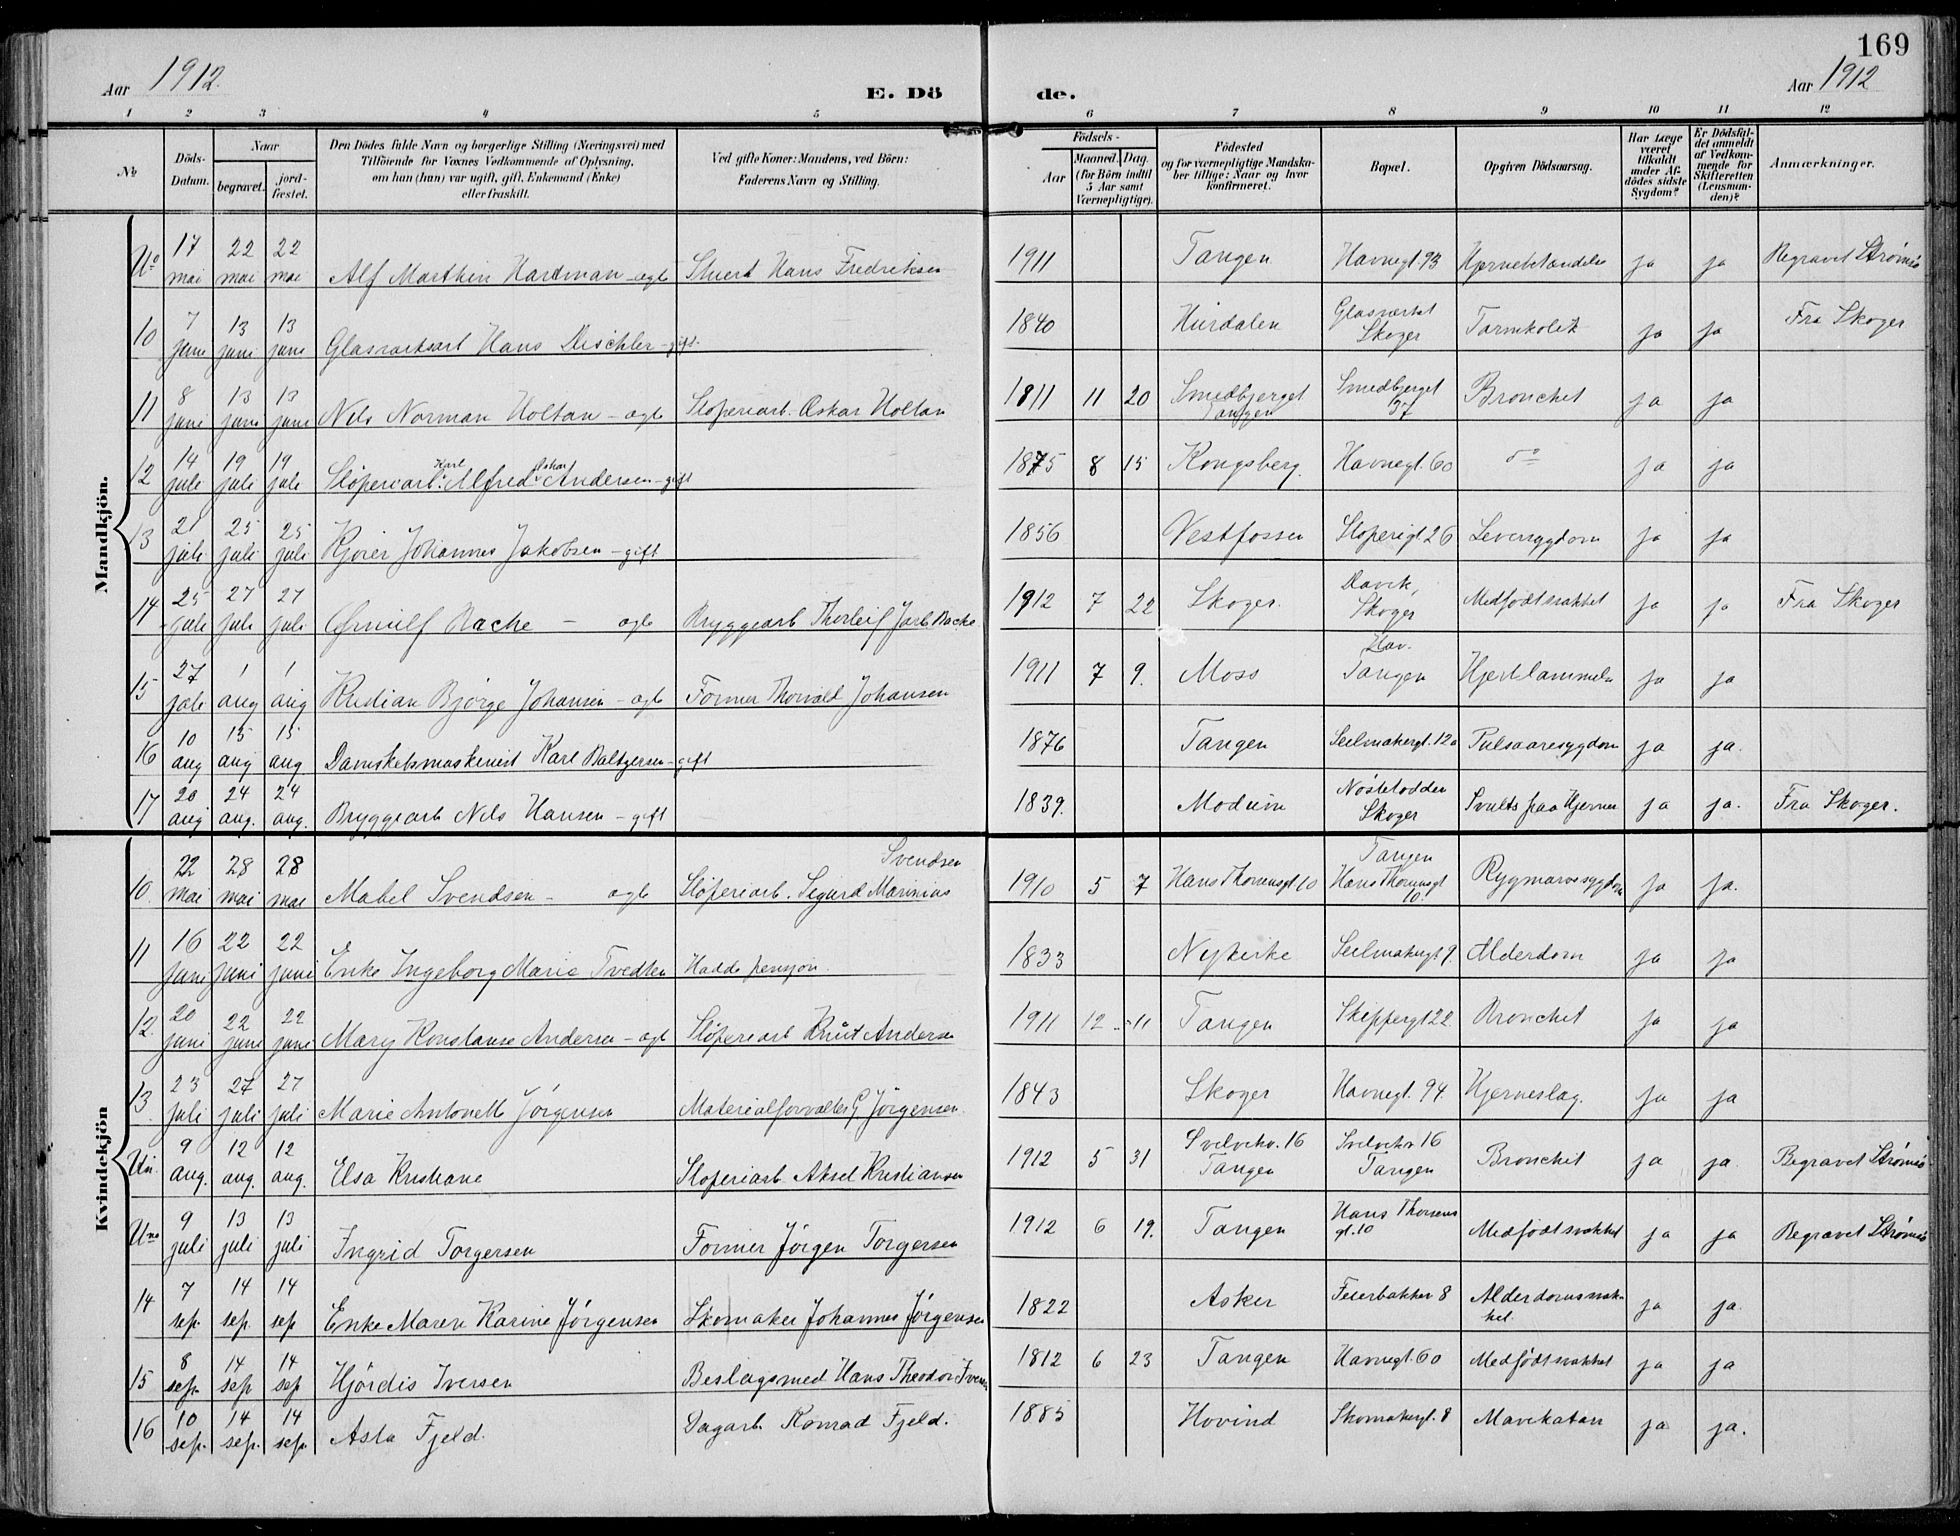 169
Aar 1912.
E. Dö de.
Aar 1912
1 2 3 4 5 6 7 8 9 10 11 12
№
Döds-Datum.
Naar
begravet.
jordfæstet.
Den Dödes fulde Navn og borgerlige Stilling (Næringsvei) med
Tilföiende for Voxnes Vedkommende af Oplysning,
om han (hun) var ugift, gift, Enkemand (Enke)
eller fraskilt.
Ved gifte Koner: Mandens, ved Börn:
Faderens Navn og Stilling.
Födsels-
Aar
Maaned. Dag.
(for Börn indtil
5 Aar samt
Værnepligtige).
Födested
og for værnepligtige Mandska-
ber tillige: Naar og hvor
konfirmeret.
Bopæl.
Opgiven Dödsaarsag.
Har Læge
været
tilkaldt
under Af-
dödes sidste
Sygdom?
Er Dödsfal-
det anmeldt
af Vedkom-
mende for
Skifteretten
(Lensman-
den)?
Anmærkninger.
Mandkjön.
Uo 17 mai 22 mai 22 mai Alf Marthin Hardman - egte Stuert Hans Fredriksen 1911 Tangen Havnegt. 93 Hjernebetændelse ja ja Begravet Strømsø
10 7 juni 13 juni 13 juni Glasværksarb Hans Dischler - gift. 1840 Hurdalen Glasværket Skoger Tarmkolik ja ja Fra Skoger
11 8 juni 13 juni 13 juni Nils Norman Holtan - egte Sloperiarb. Oskar Holtan 1811 11 20 Smedbjerget Tangen Smedbjerget 37 Bronchet ja ja
12 14 juli 19 juli 19 juli Slöperiarb. Karl Alfred Oskar Andersen - gift 1875 8 15 Kongsberg. Havnegt. 60 do ja ja
13 21 juli 25 juli 25 juli Kjører Johannes Jakobsen - gift 1856 Vestfossen Sloperigt 26 Leversygdom ja ja
14 25 juli 27 juli 27 juli Ørnulf Bache - egte Bryggearb Thorleif Jarl Bache 1912 7 22 Skoger. Davik, Skoger Medfödt svakhet ja ja Fra Skoger
15 27 juli 1 aug 1 aug Kristian Bjørge Johansen - egte Former Thorvald Johansen 1911 7 9. Moss Hav. Tangen Hjertelammelse ja ja
16 10 aug 15 aug 15 aug Dampskibsmaskinist Karl Baltzersen - gift 1876 Tangen Seilmakergt. 12a Pulsaaresygdom ja ja.
17 20 aug 24 aug. 24 aug. Bryggearb Nils Hansen - gift 1839. Modum Nöstetodden Skoger Svulst paa Hjernen ja ja. Fra Skoger.
Kvindekjön
10. 22 mai 28 mai 28 mai Mabel Svendsen - egte Slöperiarb. Sigurd Marinius Svendsen 1910 5 7 Hans Thornsgt 10 Tangen Hans Thornsgt 10. Rygmarvssygdom ja ja.
11 16 juni 22 juni 22 juni Enke Ingeborg Marie Tvedten Hadde pensjon. 1833 Nykirke Seilmakergt 9 Alderdom ja ja
12. 20 juni 22 juni 22 juni Mary Konstanse Andersen - egte Slöperiarb Knut Andersen 1911 12 11 Tangen Skippergt 22 Bronchet ja ja
13. 23 juli 27 juli 27 juli Marie Antonette Jörgensen Materialforvalter G Jörgensen. 1843 Skoger Havnegt. 94 Hjerneslag. ja ja
Un. 9 aug. 12 aug. 12 aug. Elsa Kristiane Sloperiarb. Aksel Kristiansen 1912 5 31 Svelvekv. 16 Tangen Svelvekv 16 Tangen Bronchet ja ja. Begravet Strømsø
Uno 9 juli 13 juli 13 juli Ingrid Torgersen Former Jörgen Torgersen 1912 6 19. Tangen Hans Thornsens gt. 10 Medfödt svakhet ja ja Begravet Strømsø
14 7 sep. 14 sep. 14 sep Enke Maren Karine Jörgensen Skomaker Johannes Jörgensen 1822 Asker Feierbakken 8 Alderdomssvakhet. ja ja.
15 8 sep. 14 sep 14 sep Hjördis Iversen Beslagsmed Hans Theodor Iversen 1812 6 23 Tangen Havnegt. 60 Medfödt svakhet ja ja
16 10 sep. 14 sep. 14 sep. Asta Fjeld. Dagarb. Konrad Fjeld. 1885 Hovind Skomakergt. 8 Mavekatar ja ja.